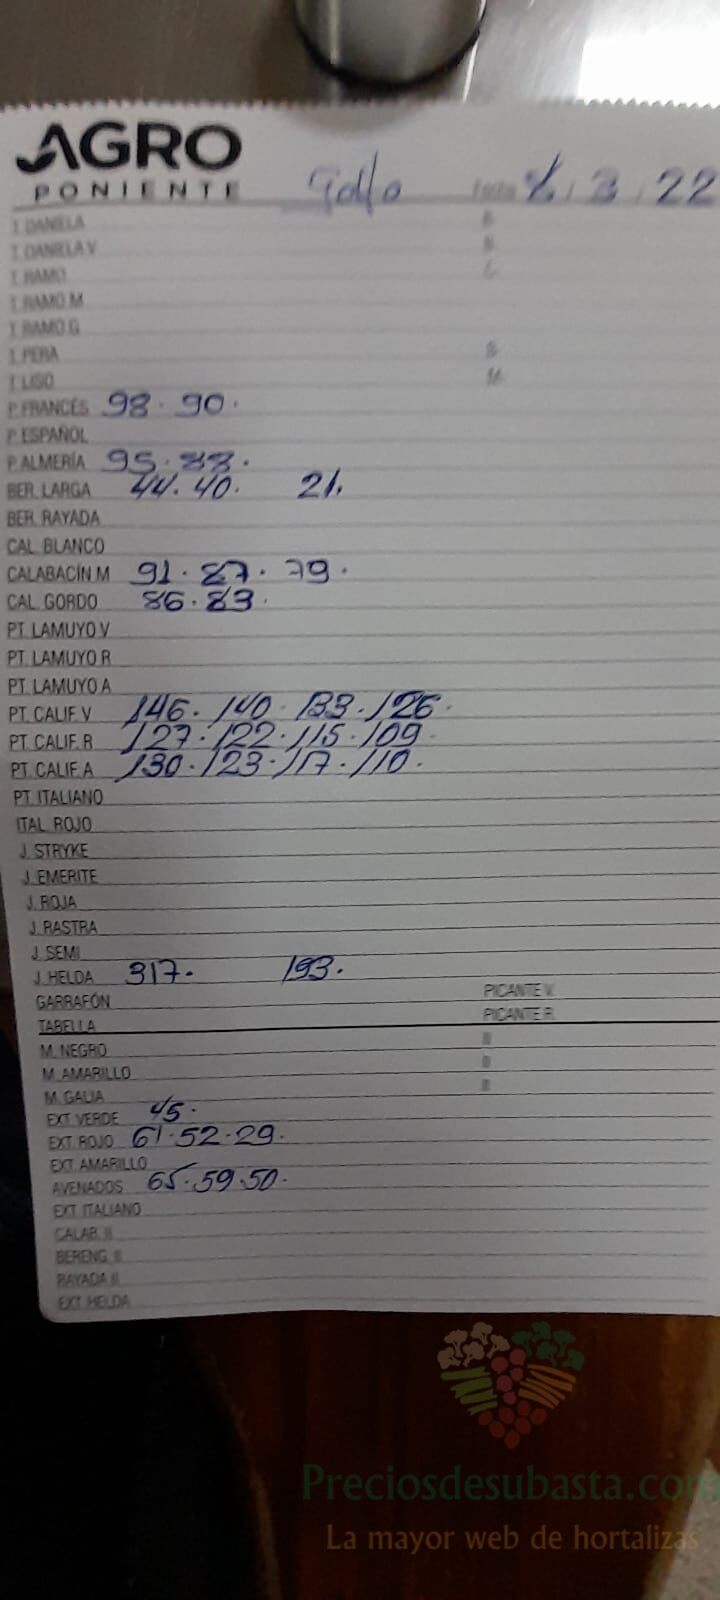 AGRO
PONIENTE Golfo Fecha 8 / 3 / 22
T. DANELA B
T. DANELA V B
T. RAMO
T. RAMO M
T. RAMO G
T. PERA B
T. LISO M
P. FRANCÉS 98 · 90 ·
P. ESPAÑOL
P. ALMERÍA 95 · 88 ·
BER. LARGA 44 · 40 · 21.
BER. RAYADA
CAL. BLANCO
CALABACÍN M 91 · 87 · 79 ·
CAL. GORDO 86 · 83 ·
PT. LAMUYO V
PT. LAMUYO R
PT. LAMUYO A
PT. CALIF. V 146 · 140 · 133 · 126 ·
PT. CALIF. R 127 · 122 · 115 · 109
PT. CALIF. A 130 · 123 · 117 · 110 ·
PT. ITALIANO
ITAL. ROJO
J. STRYKE
J. EMERITE
J. ROJA
J. RASTRA
J. SEMI
J. HELDA 317 · 193 ·
GARRAFÓN PICANTE V.
TABELLA PICANTE R.
M. NEGRO II
M. AMARILLO II
M. GALIA II
EXT. VERDE 45 ·
EXT. ROJO 61 · 52 · 29 ·
EXT. AMARILLO
AVENADOS 65 · 59 · 50 ·
EXT. ITALIANO
CALAB. II
BERENG. II
RAYADA II
EXT. HELDA
Preciosdesubasta.com
La mayor web de hortalizas